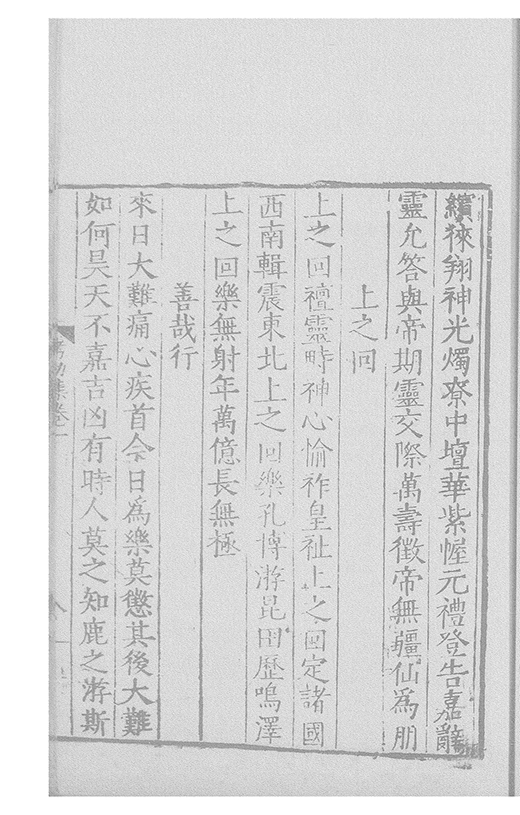 繽徠翔神光燭寮中壇華紫幄元禮登告嘉辭
靈允答與帝期靈交際萬壽徵帝無疆仙爲朋
上之回
上之回禮靈畤神心愉祚皇祉上之回定諸國
西南輯震東北上之回樂孔博游昆田歷鳴澤
上之回樂無射年萬億長無極
善哉行
來日大難痛心疾首今日爲樂莫懲其後大難
如何昊天不嘉吉凶有時人莫之知鹿之游斯
集卷一
八